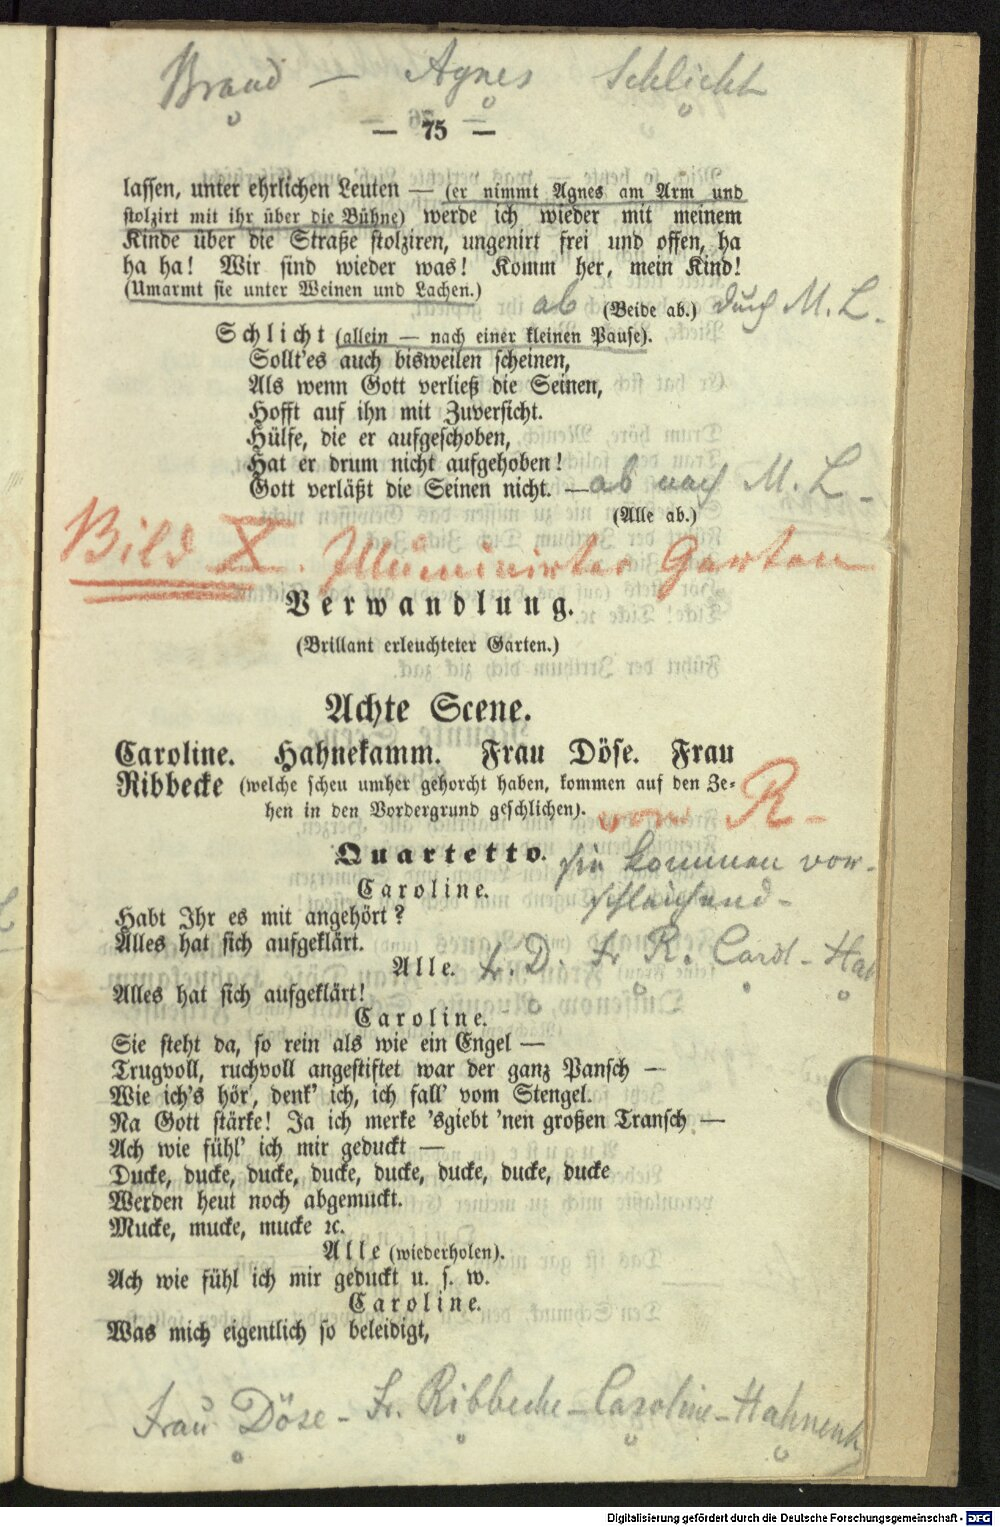 Brand — Agnes Schlicht
— 75 —
lassen, unter ehrlichen Leuten — (er nimmt Agnes am Arm und
stolzirt mit ihr über die Bühne) werde ich wieder mit meinem
Kinde über die Straße stolziren, ungenirt frei und offen, ha
ha ha! Wir sind wieder was! Komm her, mein Kind!
(Umarmt sie unter Weinen und Lachen.)
ab (Beide ab.) durch M. L.
Schlicht (allein — nach einer kleinen Pause).
Sollt'es auch bisweilen scheinen,
Als wenn Gott verließ die Seinen,
Hofft auf ihn mit Zuversicht.
Hülfe, die er aufgeschoben,
Hat er drum nicht aufgehoben!
Gott verläßt die Seinen nicht. — ab nach M. L.
(Alle ab.)
Bild X. Illuminirter Garten
Verwandlung.
(Brillant erleuchteter Garten.)
Achte Scene.
Caroline. Hahnekamm. Frau Döse. Frau
Ribbecke (welche scheu umher gehorcht haben, kommen auf den Ze-
hen in den Vordergrund geschlichen). von R.
Quartetto. sie kommen vor-
schleichend-
Caroline.
Habt Ihr es mit angehört?
Alles hat sich aufgeklärt.
Alle. Fr. D. Fr R. Carol- Hah
Alles hat sich aufgeklärt!
Caroline.
Sie steht da, so rein als wie ein Engel —
Trugvoll, ruchvoll angestiftet war der ganz Pansch —
Wie ich's hör', denk' ich, ich fall' vom Stengel.
Na Gott stärke! Ja ich merke 'sgiebt 'nen großen Transch —
Ach wie fühl' ich mir geduckt —
Ducke, ducke, ducke, ducke, ducke, ducke, ducke, ducke
Werden heut noch abgemuckt.
Mucke, mucke, mucke ꝛc.
Alle (wiederholen).
Ach wie fühl ich mir geduckt u. s. w.
Caroline.
Was mich eigentlich so beleidigt,
Frau Döse - Fr. Ribbecke - Caroline - Hahnenk
Digitalisierung gefördert durch die Deutsche Forschungsgemeinschaft - DFG